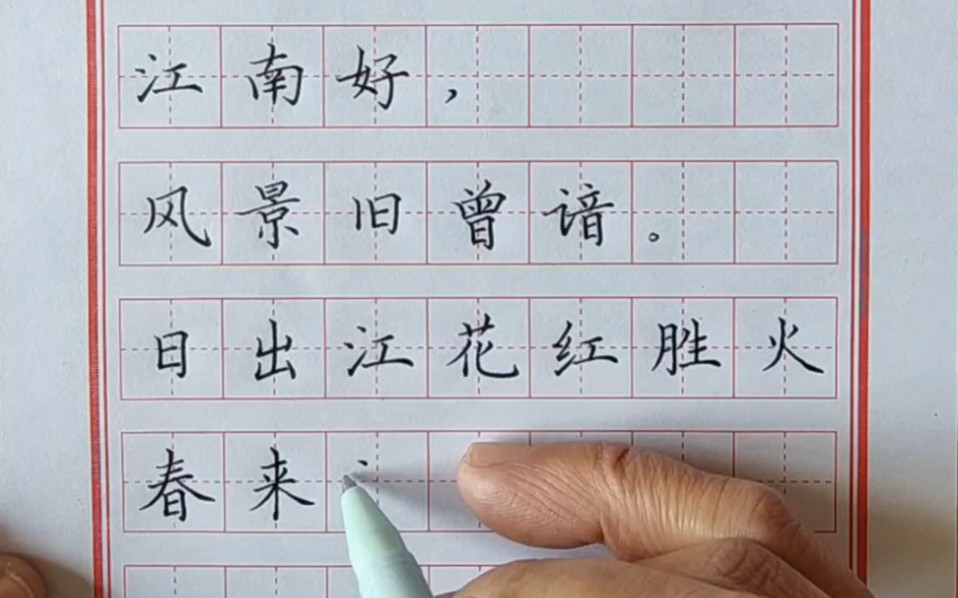 江南好，
风景旧曾谙。
日出江花红胜火
春来